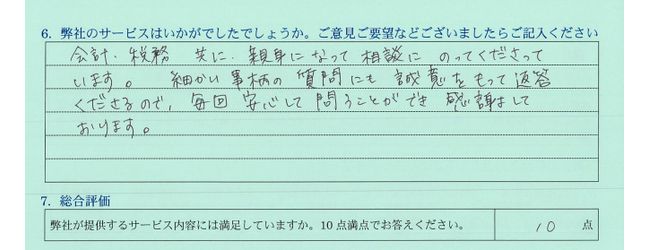 6. 弊社のサービスはいかがでしたでしょうか。ご意見ご要望などございましたらご記入ください
会計・税務 共に、親身になって相談に のってくださって
います。 細かい事柄の質問にも誠意をもって返答
くださるので、毎回安心して問うことができ感謝して
おります。
7. 総合評価
弊社が提供するサービス内容には満足していますか。10 点満点でお答えください。 10 点